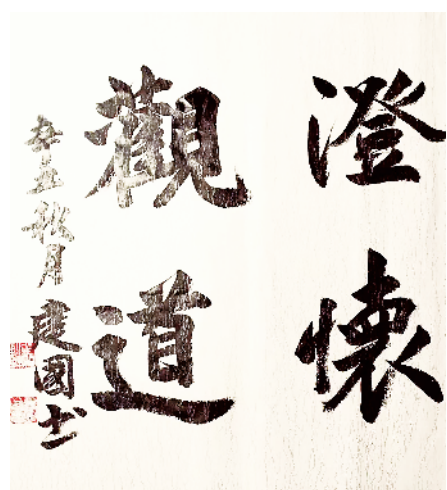 澄懷
觀道
辛丑秋月
建國书